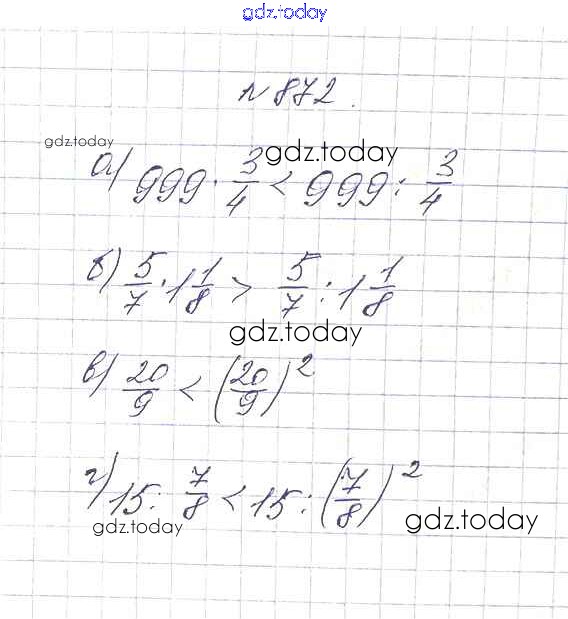 gdz.today
№ 872.
gdz.today
gdz.today
а) 999 · 3/4 < 999 : 3/4
б) 5/7 · 1 1/8 > 5/7 : 1 1/8
gdz.today
в) 20/9 < (20/9)²
г) 15 : 7/8 < 15 : (7/8)²
gdz.today
gdz.today